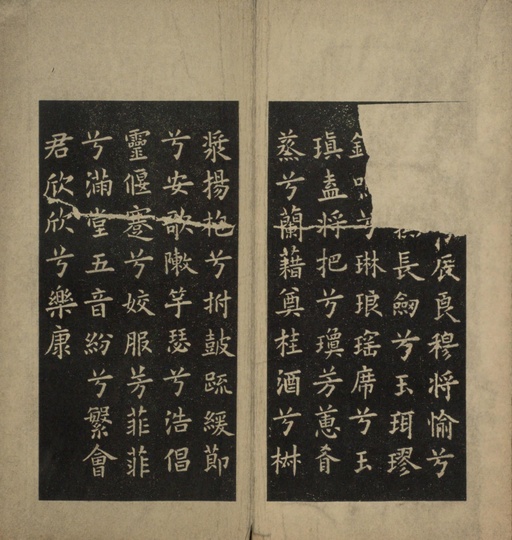 辰良穆將愉兮
長劒兮玉珥璆
兮琳琅瑶席兮玉
瑱盍將把兮瓊芳蕙肴
蒸兮蘭藉奠桂酒兮椒
漿揚枹兮拊鼓疏緩節
兮安歌敶竽瑟兮浩倡
靈偃蹇兮姣服芳菲菲
兮滿堂五音紛兮繁會
君欣欣兮樂康